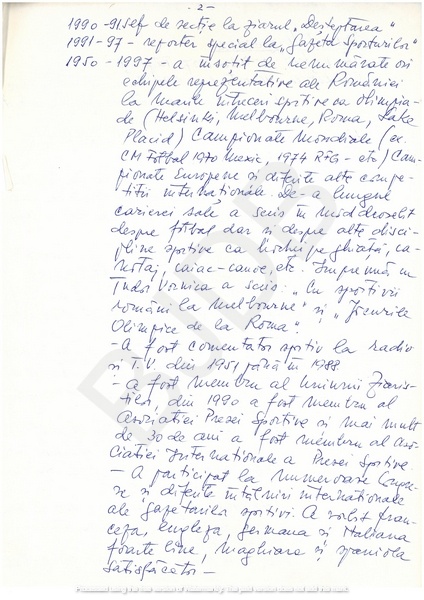 -2-
1990-91 șef de secție la ziarul „Deșteptarea"
1991-97 - reporter special la „Gazeta Sporturilor"
1950-1997 - a însoțit de nenumărate ori
echipele reprezentative ale României
la marile întreceri sportive ca Olimpia-
de (Helsinki, Melbourne, Roma, Lake
Placid) Campionate Mondiale (ex.
CM Fotbal 1970 Mexic, 1974 RFG - etc) Cam-
pionate Europene și diferite alte compe-
tiții internaționale. De-a lungul
carierei sale a scris în mod deosebit
despre fotbal dar și despre alte disci-
pline sportive ca hochei pe ghiață, ca-
notaj, caiac-canoe, etc. Împreună cu
Tudor Vornicu a scris: „Cu sportivii
români la Melbourne" și „Jocurile
Olimpice de la Roma".
- A fost comentator sportiv la radio
și T.V. din 1951 până în 1988.
- a fost membru al Uniunii Ziariș-
tilor, din 1990 a fost membru al
Asociației Presei Sportive și mai mult
de 30 de ani a fost membru al Aso-
ciației Internationale a Presei Sportive.
- A participat la numeroase Congre-
se și diferite întâlniri internationale
ale gazetarilor sportivi. A vorbit fran-
ceza, engleza, germana și italiana
foarte bine, maghiara și spaniola
satisfăcător -